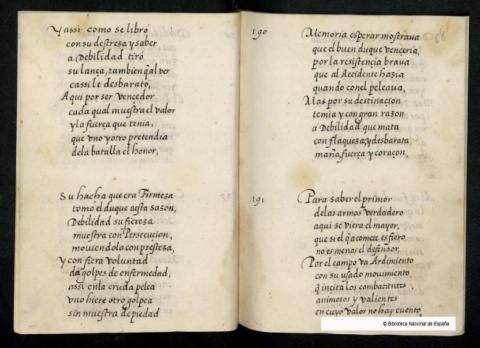 Y assi como se libró
con su destreza y saber
a Debilidad tiró
su lança, tambien q̃ al ver
cassi le desbarato,
Aqui por ser vencedor
cada qual muestra el valor
y la fuerça que tenia,
que vno y otro pretendia
de la batalla el honor,
Su hacha que era Firmeza
tomo el duque a esta sazon,
Debilidad su fiereza
muestra con Persecucion,
mouiendola con presteza,
y con fiera voluntad
da golpes de enfermedad,
assi en la cruda pelea
vno hiere otro golpea
sin muestra de piedad
190
Memoria esperar mostraua
que el buen duque venceria,
por la resistencia braua
que al Accidente hazia
quando con el peleaua,
Mas por su destinacion
temia y con gran razon
a Debilidad que mata
con flaqueza, y desbarata
maña, fuerça y coraçon,
191
Para saber el primor
de las armas verdadero
aqui se viera el mayor,
que si el q̃ acomete es fiero
no es menos el defensor,
Por el campo va Ardimiento
con su vsado mouimiento
q̃ incita los combatientes
animosos y valientes
en cuyo valor no hay cuento,
© Biblioteca Nacional de España